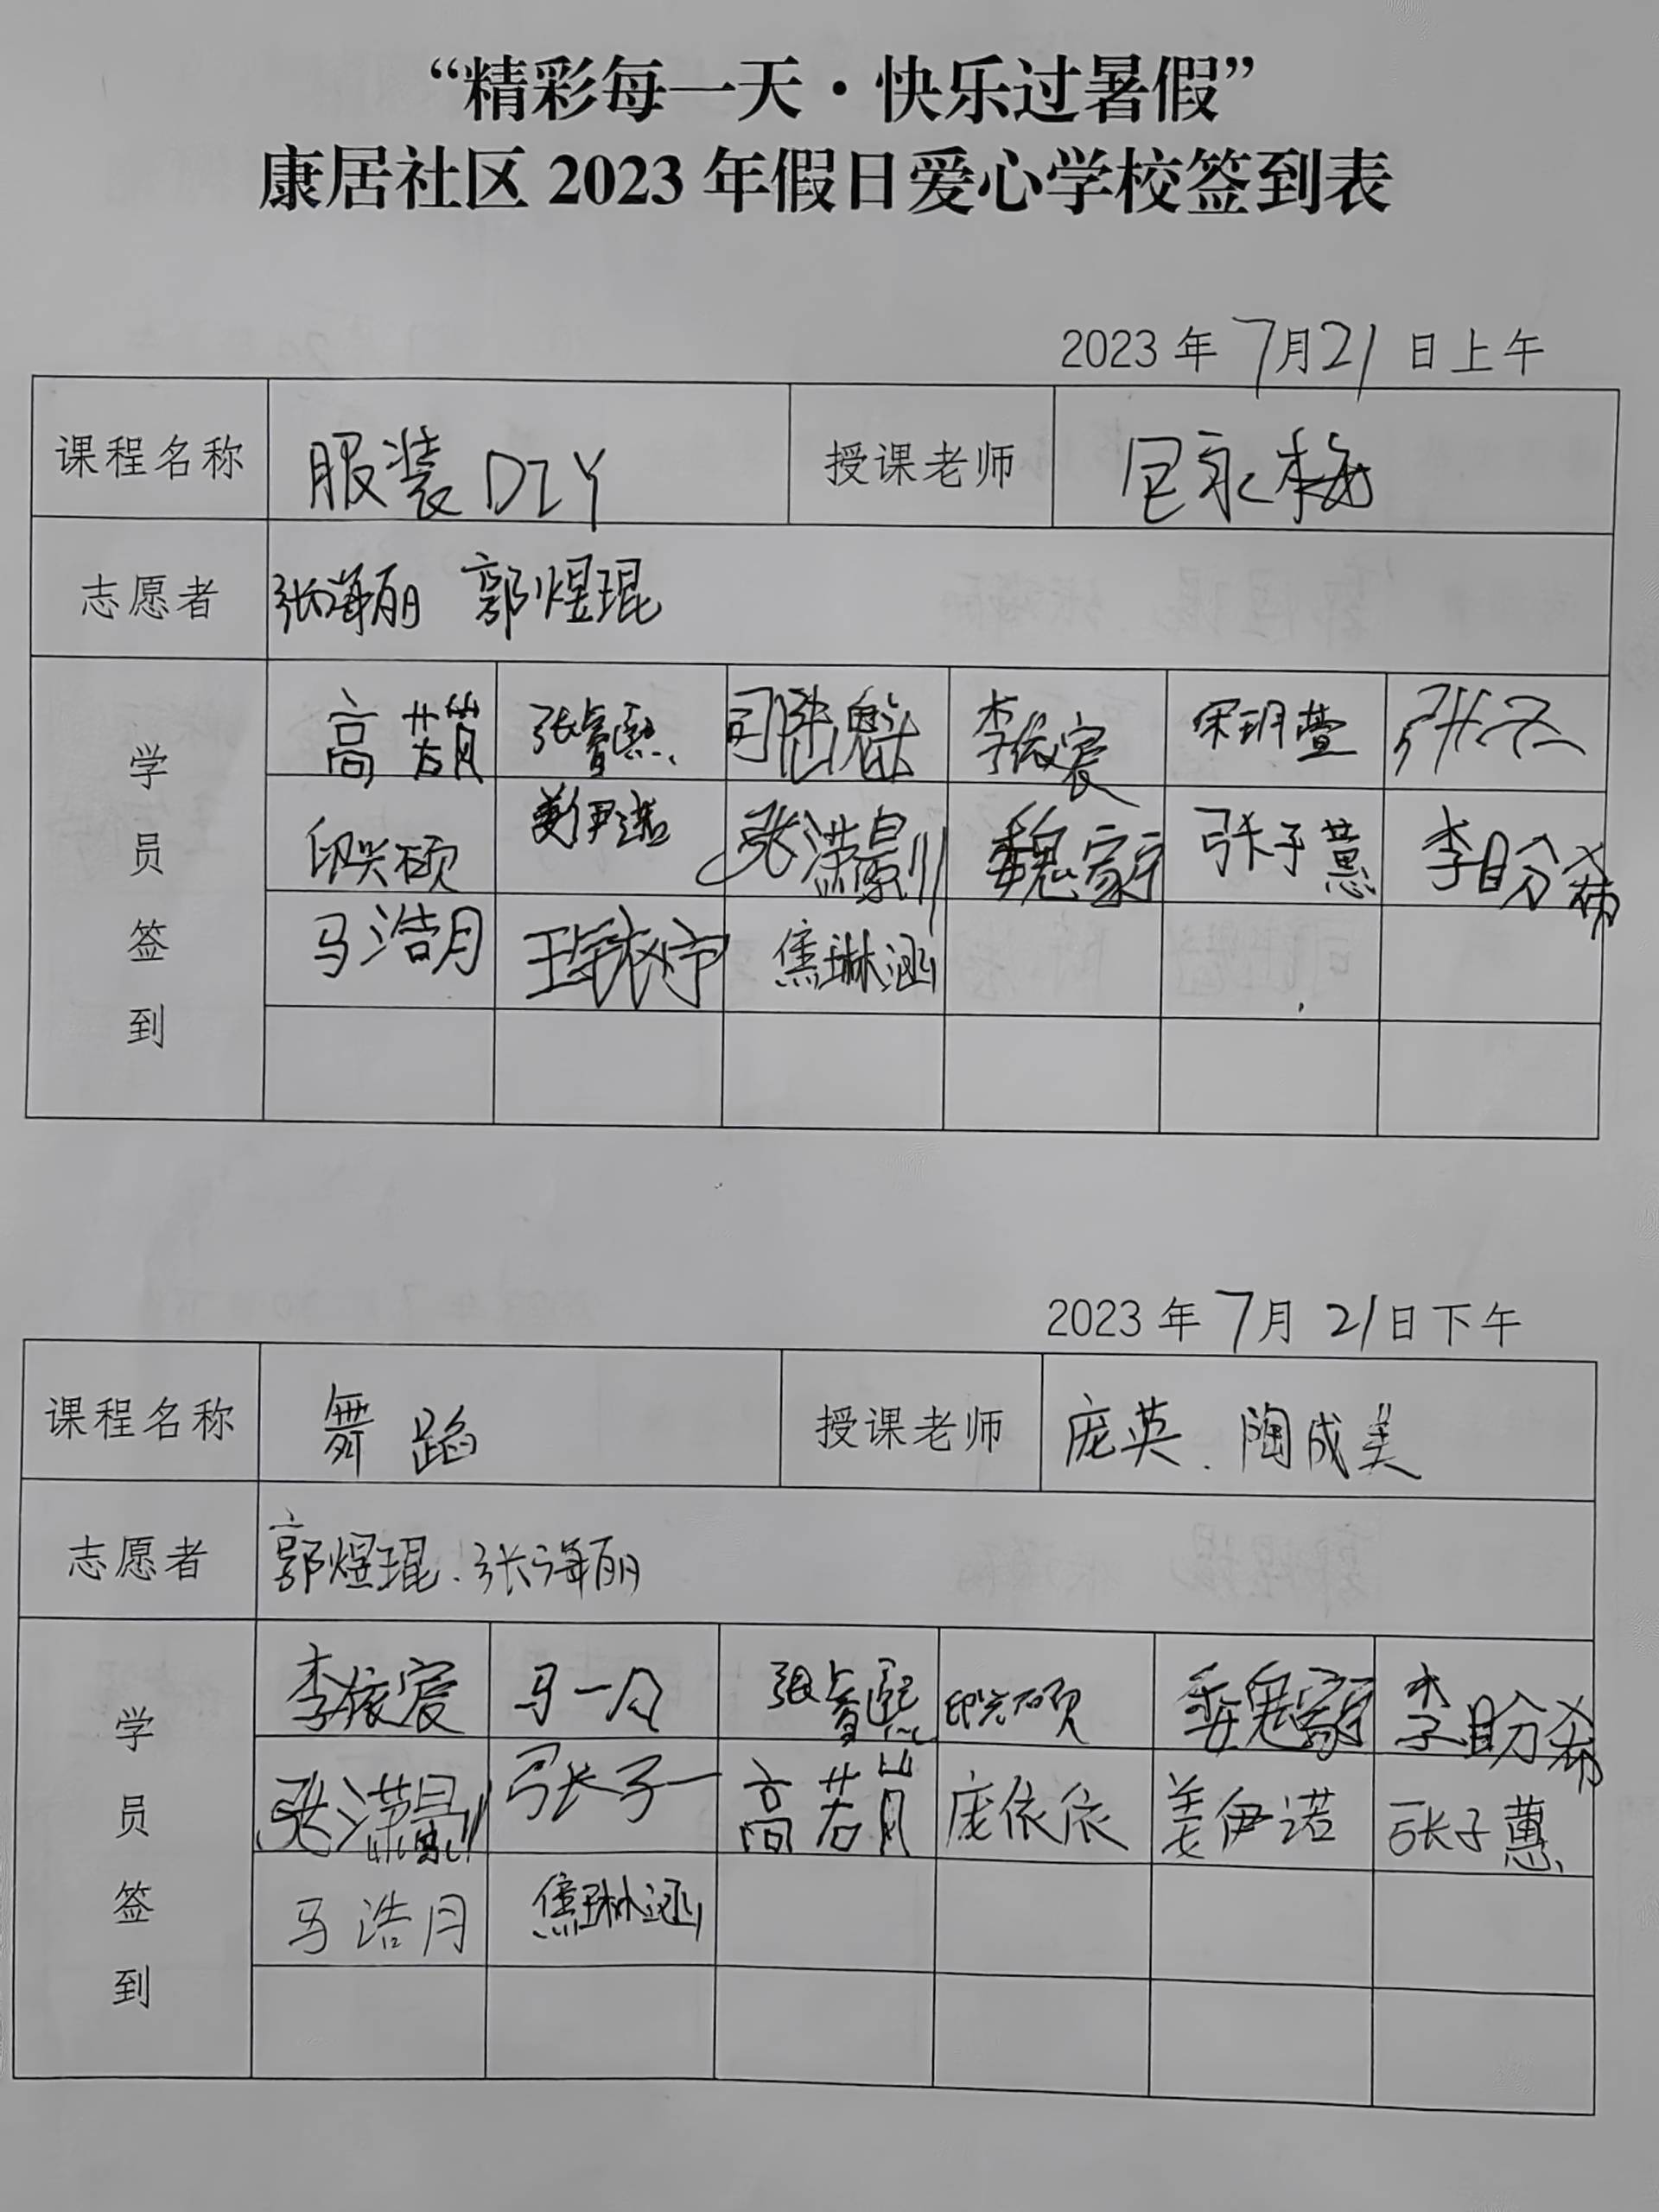 “精彩每一天·快乐过暑假”
康居社区 2023 年假日爱心学校签到表
2023 年 7月21 日上午
课程名称 服装DIY 授课老师 包永梅
志愿者 张海丽 郭煜琨
学员签到
高若萱 张睿熙 李依宸 张子一
印兴硕 姜伊诺 魏家宇 张子蕙 李盼希
马浩月 焦琳涵
2023 年 7月 21日下午
课程名称 舞蹈 授课老师 庞英、陶成美
志愿者 郭煜琨、张海丽
学员签到
李依宸 马一 张睿熙 印兴硕 魏家宇 李盼希
张子一 高若 庞依依 姜伊诺 张子蕙
马浩月 焦琳涵